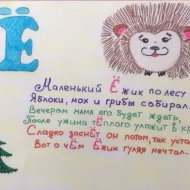 Ё
Маленький Ёжик по лесу
Яблоки, мох и грибы собирал.
Вечером мама его будет ждать,
После ужина тёплого уложит в
Сладко заснёт он, потом, так
Вот о чём Ёжик гуляя мечтал